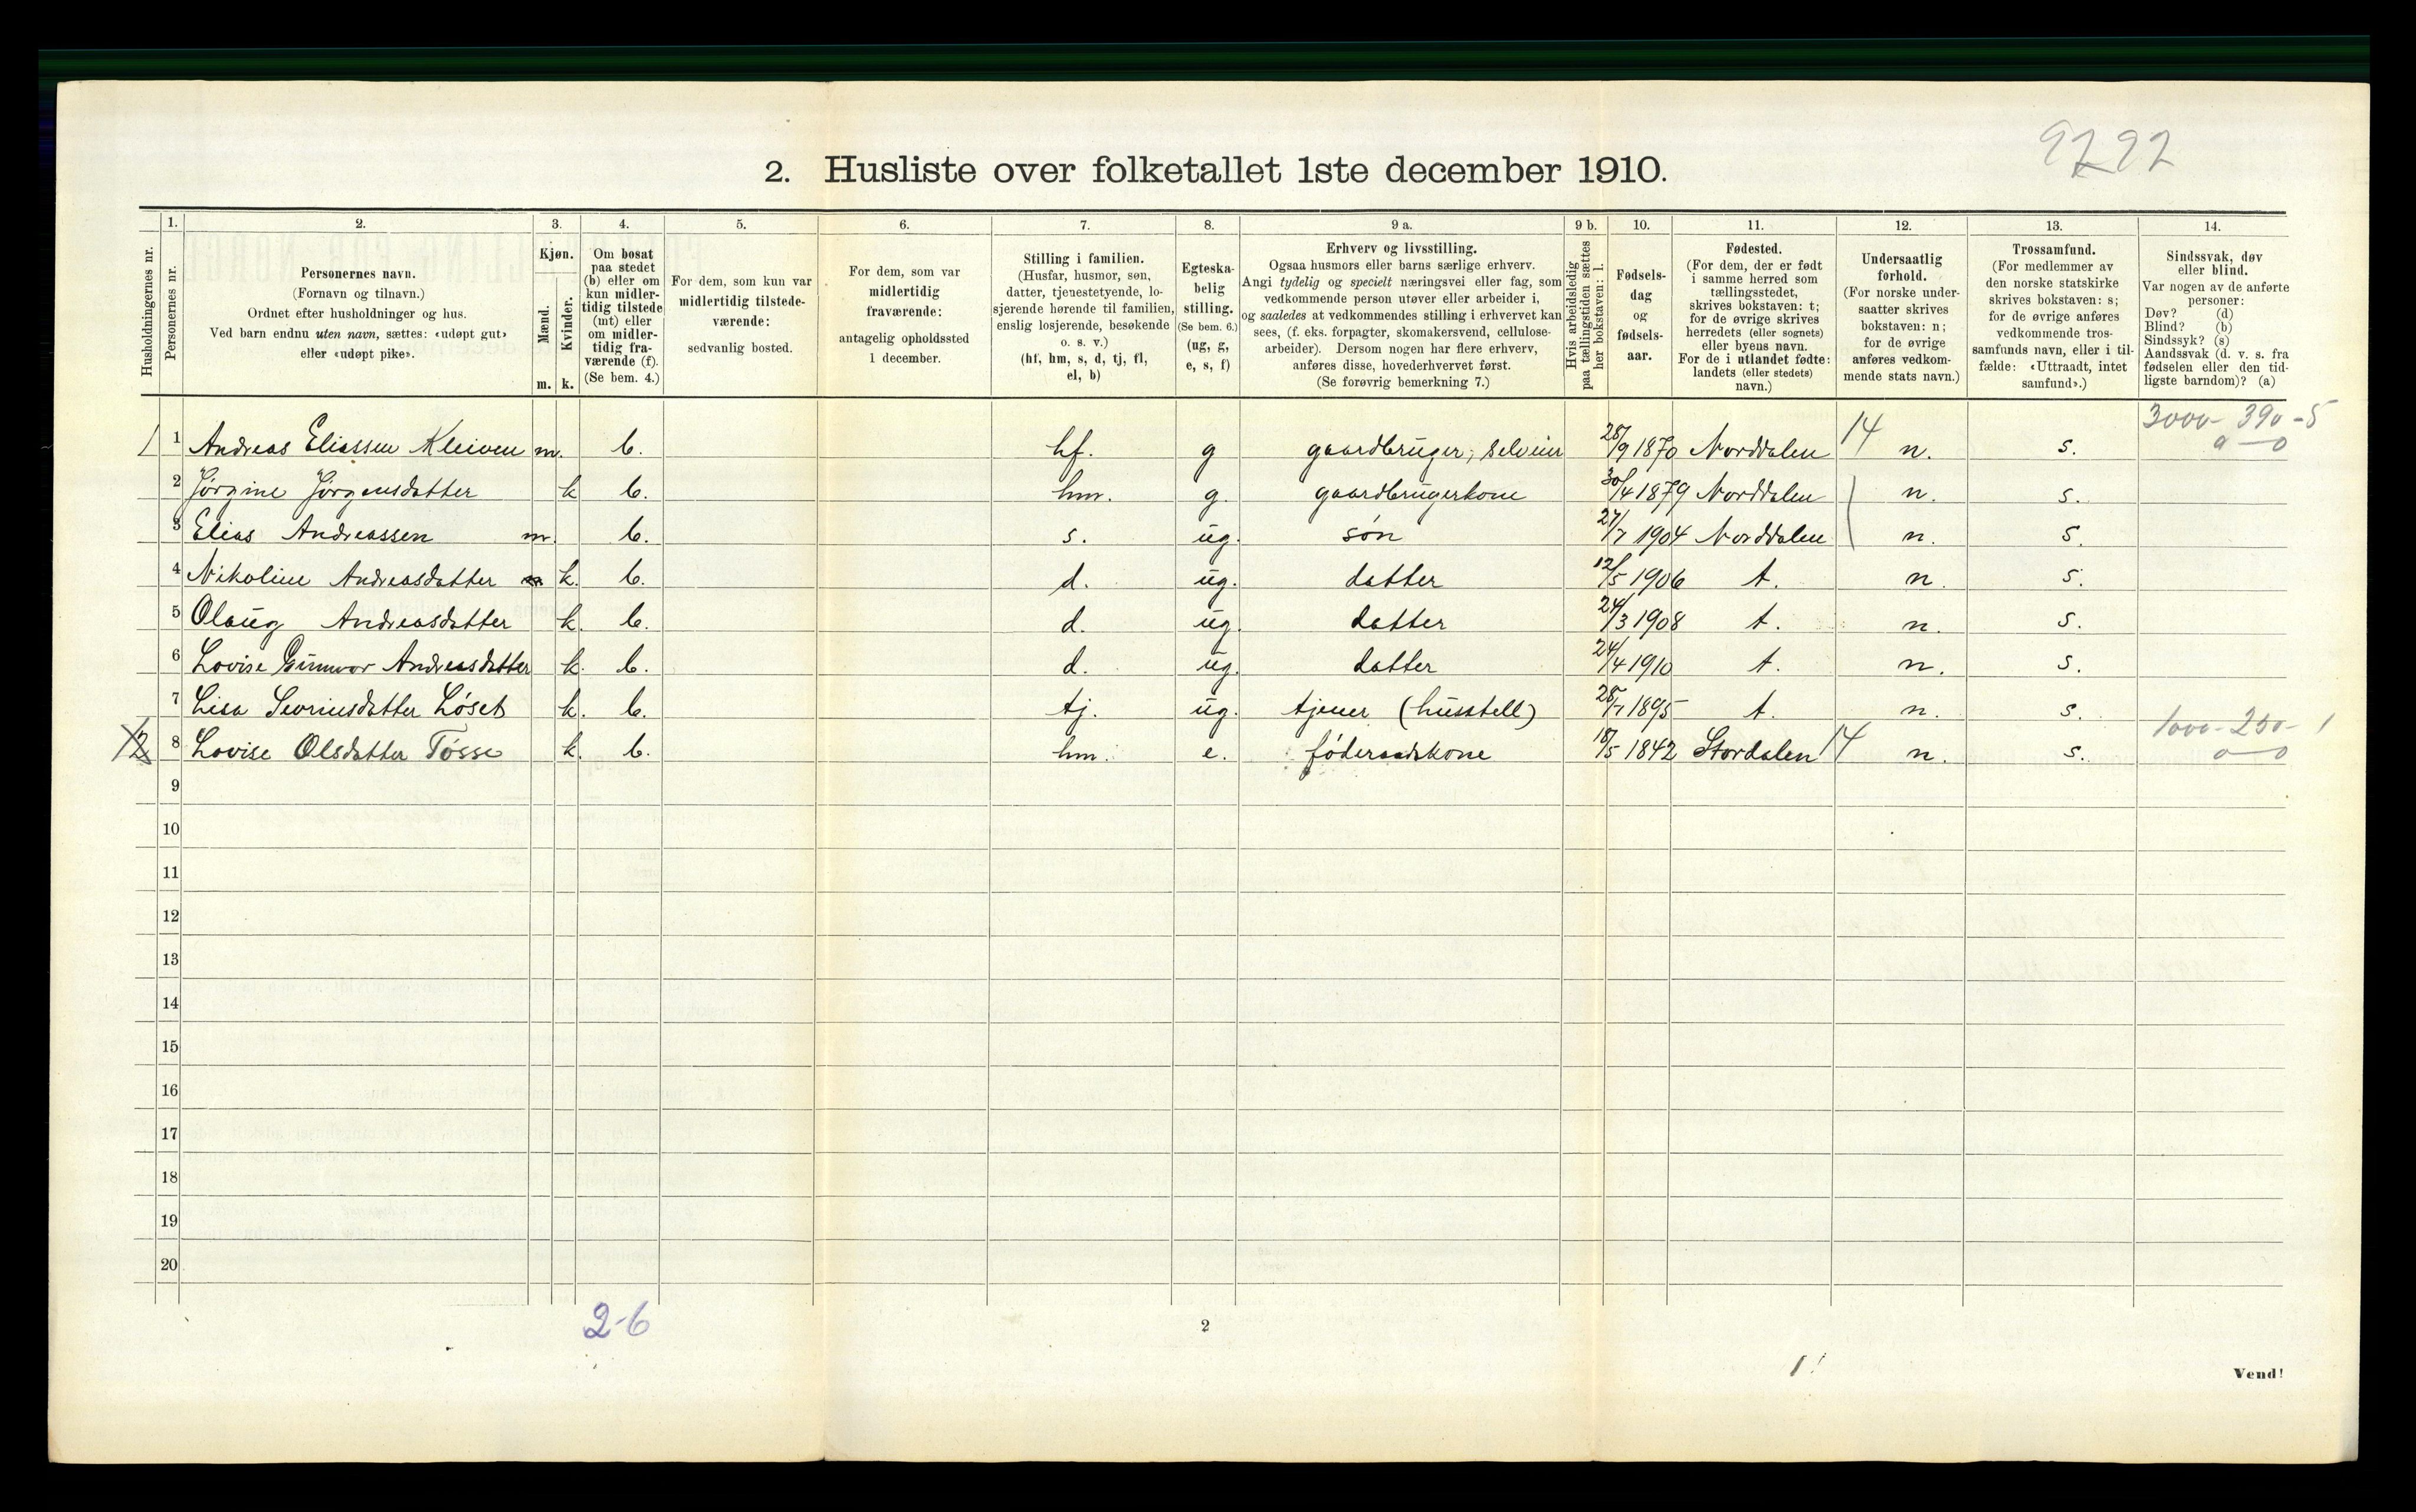 9292
2. Husliste over folketallet 1ste december 1910.
1. 2. 3. 4. 5. 6. 7. 8. 9 a. 9 b. 10. 11. 12. 13. 14.
Husholdningernes nr.
Personernes nr.
Personernes navn.
(Fornavn og tilnavn.)
Ordnet efter husholdninger og hus.
Ved barn endnu uten navn, sættes: «udøpt gut»
eller «udøpt pike».
Kjøn.
Mænd.
Kvinder.
m. k.
Om bosat
paa stedet
(b) eller om
kun midler-
tidig tilstede
(mt) eller
om midler-
tidig fra-
værende (f).
(Se bem. 4.)
For dem, som kun var
midlertidig tilstede-
værende:
sedvanlig bosted.
For dem, som var
midlertidig
fraværende:
antagelig opholdssted
1 december.
Stilling i familien.
(Husfar, husmor, søn,
datter, tjenestetyende, lo-
sjerende hørende til familien,
enslig losjerende, besøkende
o. s. v.)
(hf, hm, s, d, tj, fl,
el, b)
Egteska-
belig
stilling.
(Se bem. 6.)
(ug, g,
e, s, f)
Erhverv og livsstilling.
Ogsaa husmors eller barns særlige erhverv.
Angi tydelig og specielt næringsvei eller fag, som
vedkommende person utøver eller arbeider i,
og saaledes at vedkommendes stilling i erhvervet kan
sees, (f. eks. forpagter, skomakersvend, cellulose-
arbeider). Dersom nogen har flere erhverv,
anføres disse, hovederhvervet først.
(Se forøvrig bemerkning 7.)
Hvis arbeidsledig
paa tællingstiden sættes
her bokstaven: l.
Fødsels-
dag
og
fødsels-
aar.
Fødested.
(For dem, der er født
i samme herred som
tællingsstedet,
skrives bokstaven: t;
for de øvrige skrives
herredets (eller sognets)
eller byens navn.
For de i utlandet fødte:
landets (eller stedets)
navn.)
Undersaatlig
førhold.
(For norske under-
saatter skrives
bokstaven: n;
for de øvrige
anføres vedkom-
mende stats navn.)
Trossamfund.
(For medlemmer av
den norske statskirke
skrives bokstaven: s;
for de øvrige anføres
vedkommende tros-
samfunds navn, eller i til-
fælde: «Uttraadt, intet
samfund».)
Sindssvak, døv
eller blind.
Var nogen av de anførte
personer:
Døv? (d)
Blind? (b)
Sindssyk? (s)
Aandssvak (d. v. s. fra
fødselen eller den tid-
ligste barndom)? (a)
3000 - 390 - 5
1 1 Andreas Eliassen Kleiven m. b. hf. g gaardbruger, selveier 28/9 1870 Norddalen 14 n. s. 0 — 0
2 Jørgine Jørgensdatter k b. hm. g. gaardbrugerkone 30/4 1879 Norddalen n. s.
3 Elias Andreassen m. b. s. ug. søn 27/7 1904 Norddalen n. s.
4 Nikoline Andreasdatter k. b. d. ug. datter 12/5 1906 t. n. s.
5 Olaug Andreasdatter k. b. d. ug. datter 24/3 1908 t. n. s.
6 Lovise Gunvor Andreasdatter k. b. d. ug. datter 24/4 1910 t. n. s.
7 Lisa Severinsdatter Løset k. b. tj. ug. tjener (husstell) 1895 t. n. s.
1000 - 250 - 1
2 8 Lovise Olsdatter Fosse k. b. hm. e. føderaadskone 18/5 1842 Stordalen 14 n. s. 0 — 0
9
10
11
12
13
14
15
16
17
18
19
20
2-6
2
1!
Vend!